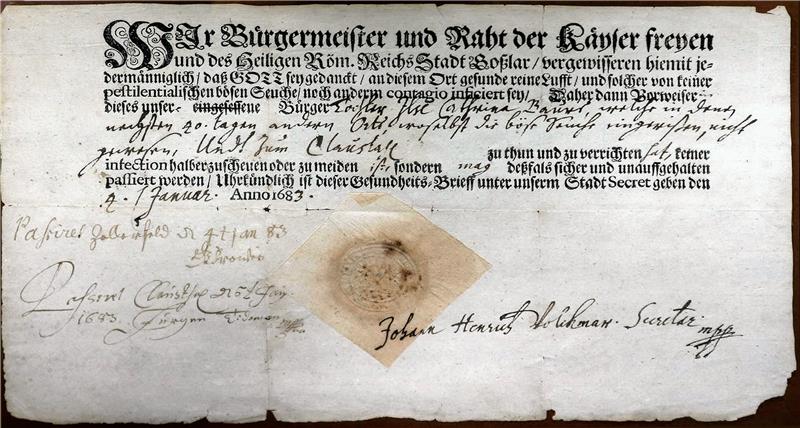 WIr Bürgermeister und Raht der Käyser freyen
und des Heiligen Röm. Reichs Stadt Goßlar / vergewissern hiemit je-
dermänniglich / daß GOTT sey gedanckt / an diesem Ort gesunde reine Lufft / und solcher von keiner
pestilentialischen bösen Seuche / noch anderm contagio inficiert sey / Daher dann Vorweiser
dieses unser eingesessene Bürger Tochter Ilse Cathrina Baurs, welche in denen
nechsten 40. tagen andern Orts woselbst die böse Seuche eingerissen, nicht
gewesen, Undt zum Claustall zu thun und zu verrichten hat, keiner
infection halber zuscheuen oder zu meiden ist, sondern mag deßfals sicher und unauffgehalten
passiert werden / Uhrkündlich ist dieser Gesundheits-Brieff unter unserm Stadt Secret geben den
4. Januar. Anno 1683.
Passiret Zellerfeld d 4t Jan 83
Passiret Clausthal
1683. Jürgen
Johann Henrich Volckmar. Secretar mpp